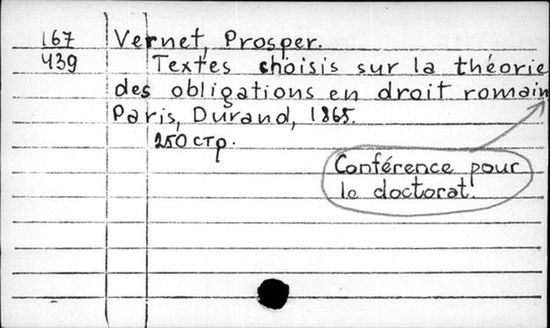 167 Vernet, Prosper.
439 Textes choisis sur la théorie
des obligations en droit romain
Paris, Durand, 1865.
250 стр.
Conférence pour
le doctorat.